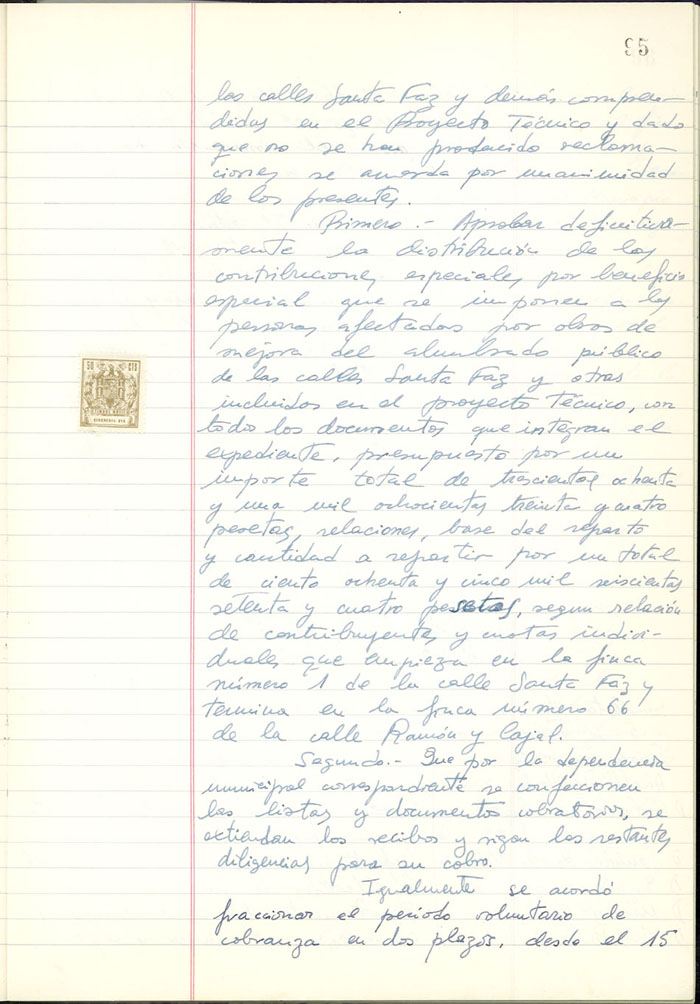 95
las calles Santa Faz y demás compren-
didas en el Proyecto Técnico y dado
que no se han producido reclama-
ciones se acuerda por unanimidad
de los presentes.
Primero.- Aprobar definitiva-
mente la distribución de las
contribuciones especiales por beneficio
especial que se imponen a las
personas afectadas por obras de
mejora del alumbrado público
de las calles Santa Faz y otras
incluidas en el proyecto Técnico, con
todo los documentos que integran el
expediente, presupuesto por un
importe total de trescientas ochenta
y una mil ochocientas treinta y cuatro
pesetas, relaciones, base del reparto
y cantidad a repartir por un total
de ciento ochenta y cinco mil seiscientas
setenta y cuatro pesetas, segun relación
de contribuyentes y cuotas indivi-
duales que empieza en la finca
número 1 de la calle Santa Faz y
termina en la finca número 66
de la calle Ramón y Cajal.
Segundo.- Que por la dependencia
municipal correspondiente se confeccionen
las listas y documentos cobratorios, se
extiendan los recibos y sigan las restantes
diligencias para su cobro.
Igualmente se acordó
fraccionar el período voluntario de
cobranza en dos plazos, desde el 15
50 CTS